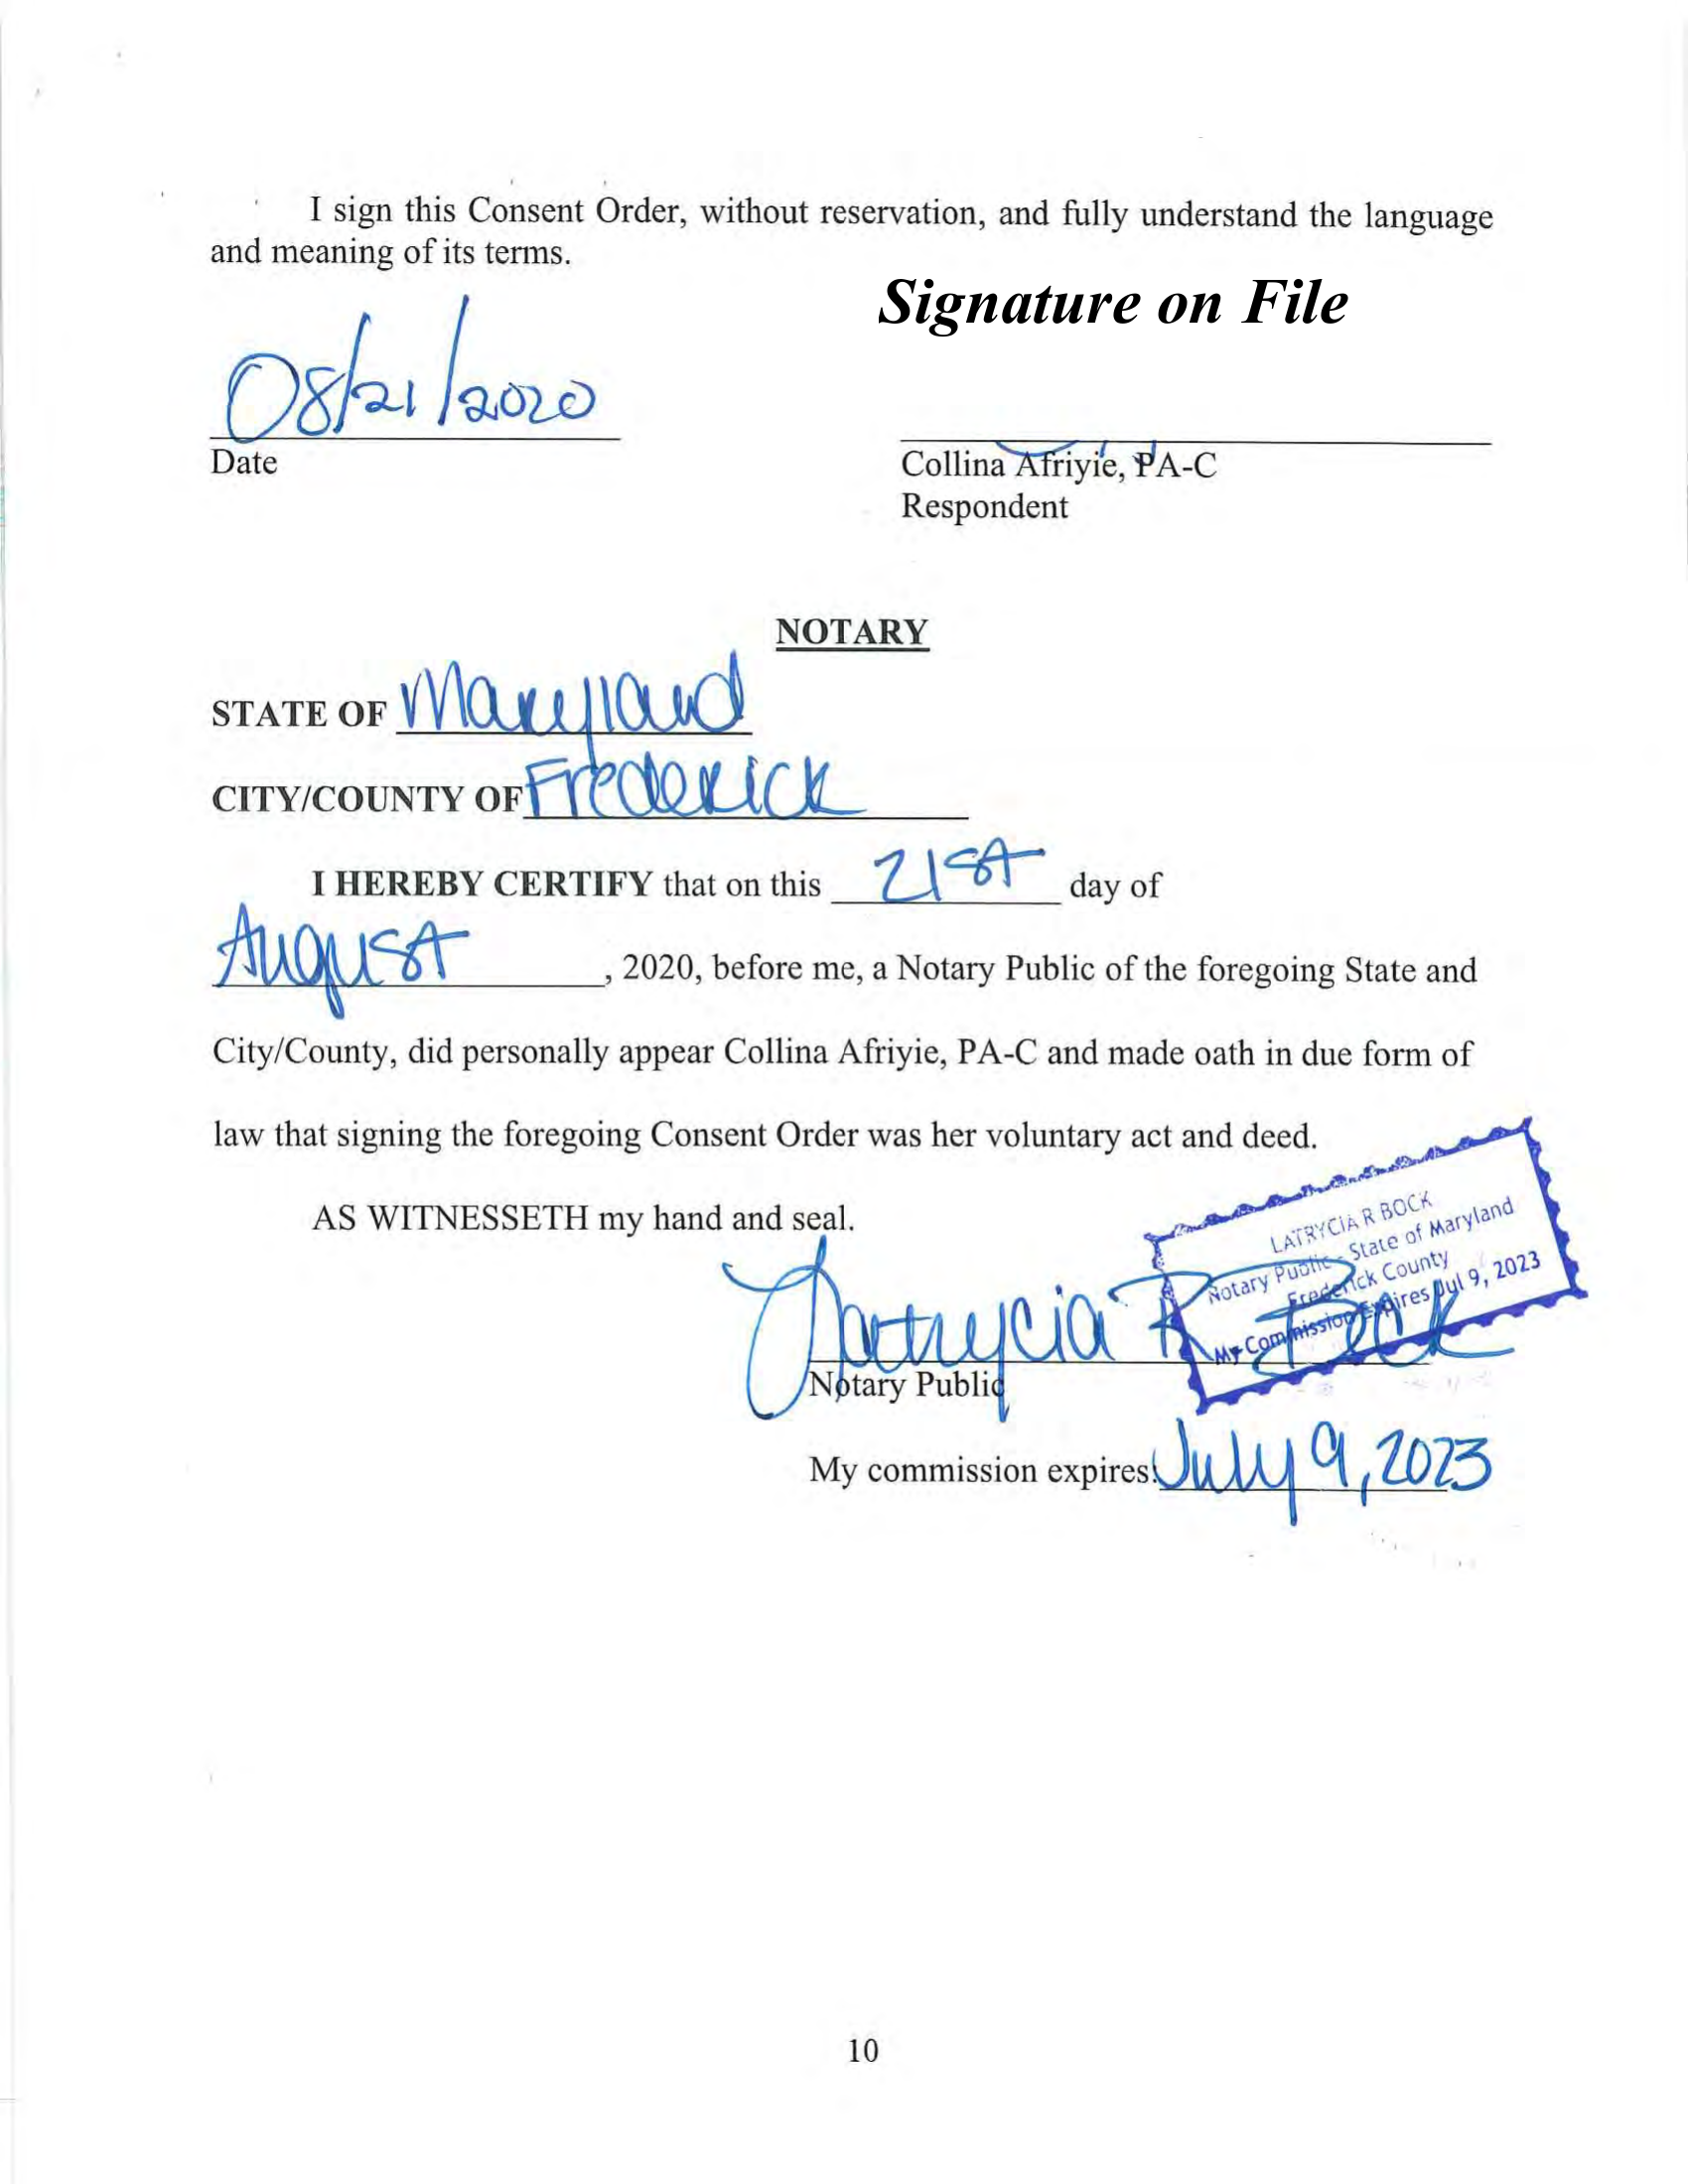 I sign this Consent Order, without reservation, and fully understand the language
and meaning of its terms.
Signature on File
08/21/2020
Date
Collina Afriyie, PA-C
Respondent
NOTARY
STATE OF Maryland
CITY/COUNTY OF Frederick
I HEREBY CERTIFY that on this 21st day of
August, 2020, before me, a Notary Public of the foregoing State and
City/County, did personally appear Collina Afriyie, PA-C and made oath in due form of
law that signing the foregoing Consent Order was her voluntary act and deed.
AS WITNESSETH my hand and seal.
LATRYCIA R BOCK
Notary Public - State of Maryland
Frederick County
My Commission Expires Jul 9, 2023
Latrycia R Bock
Notary Public
My commission expires: July 9, 2023
10